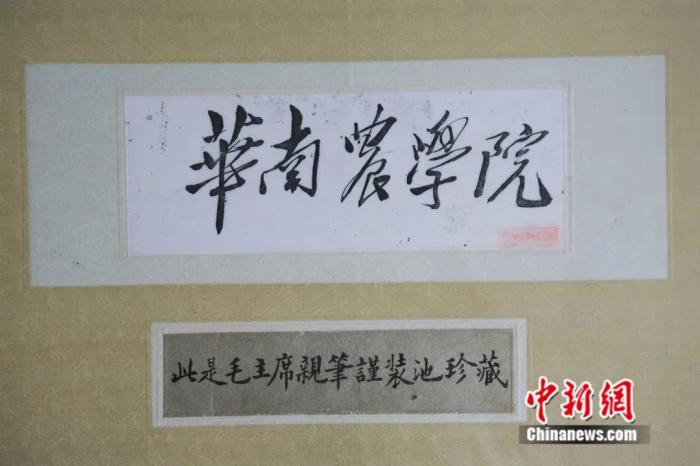 華南農學院
此是毛主席親筆謹装池珍藏
中新網
Chinanews.com